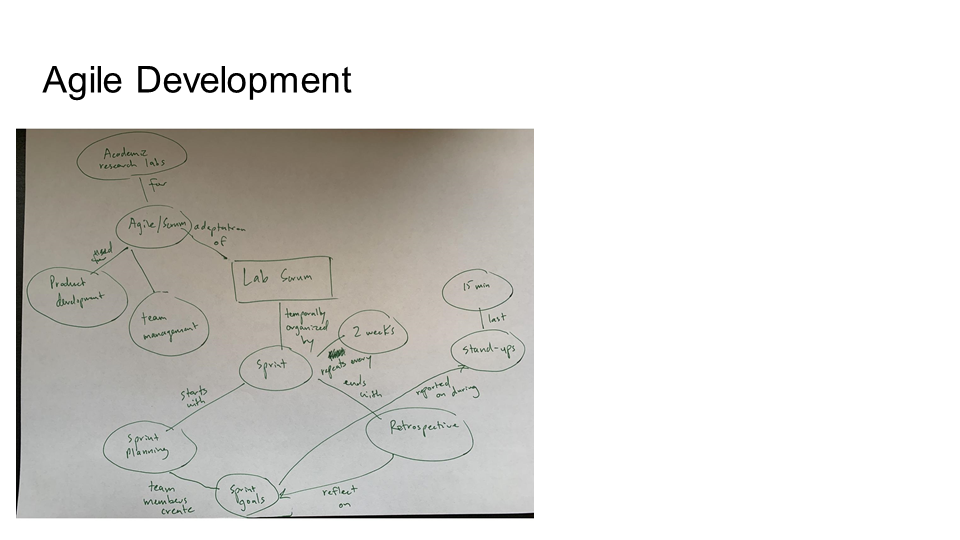 Agile Development
Academic
research labs
for
Agile/Scrum
adaptation
of
used
for
Product
development
team
management
Lab Scrum
15 min
last
temporally
organized
by
2 weeks
Stand-ups
Sprint
repeats every
ends
with
reported
on during
starts
with
Retrospective
Sprint
planning
team
members
create
Sprint
goals
reflect
on